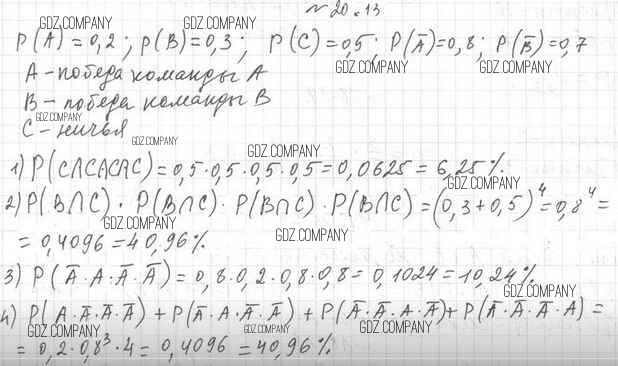 № 20.13
GDZ.COMPANY GDZ.COMPANY
P(A) = 0,2; P(B) = 0,3; P(C) = 0,5; P(Ā) = 0,8; P(B̄) = 0,7
GDZ.COMPANY GDZ.COMPANY
A - победа команды A
B - победа команды B
C - ничья
GDZ.COMPANY GDZ.COMPANY
GDZ.COMPANY
1) P(C∩C∩C∩C) = 0,5·0,5·0,5·0,5 = 0,0625 = 6,25%.
GDZ.COMPANY
2) P(B∩C)·P(B∩C)·P(B∩C)·P(B∩C) = (0,3+0,5)⁴ = 0,8⁴ =
GDZ.COMPANY GDZ.COMPANY
= 0,4096 = 40,96%.
3) P(Ā·A·Ā·Ā) = 0,8·0,2·0,8·0,8 = 0,1024 = 10,24%.
GDZ.COMPANY
4) P(A·Ā·Ā·Ā) + P(Ā·A·Ā·Ā) + P(Ā·Ā·A·Ā) + P(Ā·Ā·Ā·A) =
GDZ.COMPANY GDZ.COMPANY GDZ.COMPANY
= 0,2·0,8³·4 = 0,4096 = 40,96%